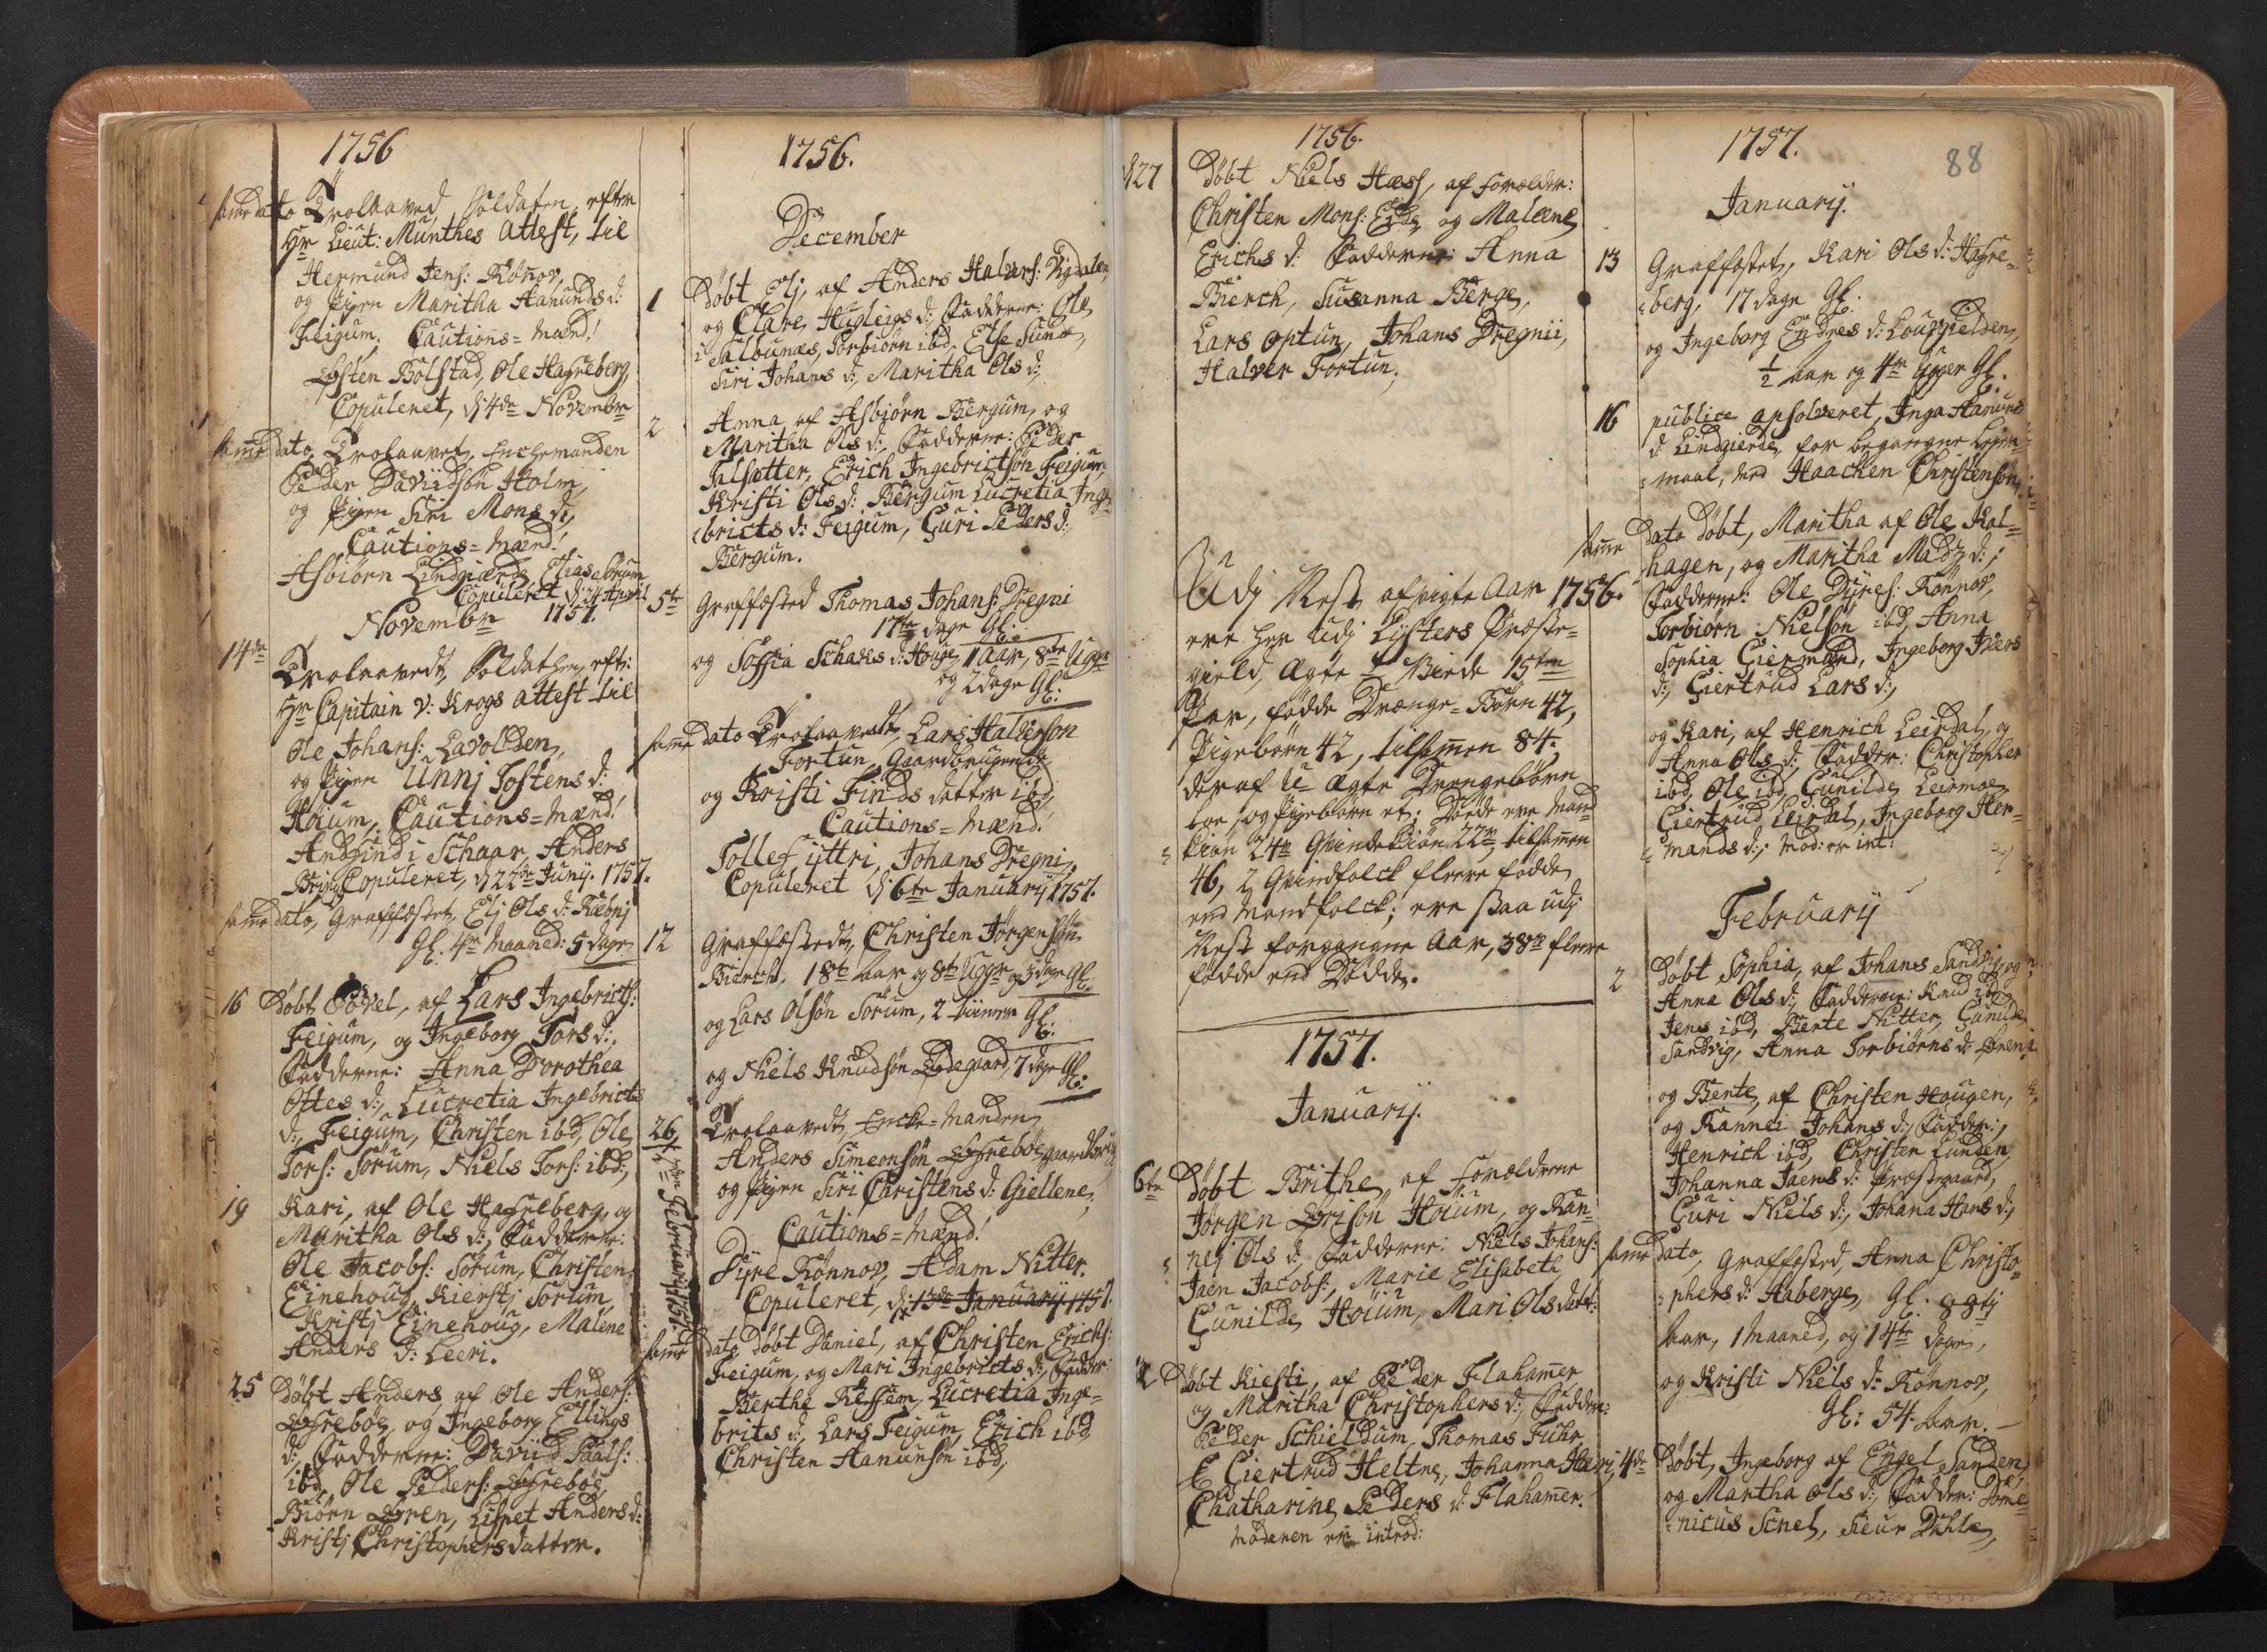 1756
same dato Trolaaved, Soldaten, efter
Hr Lieut: Munthes Attest, til
Hermund Jens: Rønov,
og Pigen Maritha Aanunds d:
Feigum. Cautions-Mænd!
Østen Bolstad, Ole Hafreberg,
Copuleret, d: 4de Novembr
same dato Trolaavet, Enchemanden
Peder Daviidsøn Holm,
og Pigen Siri Mons d:,
Cautions-Mænd!
Asbiørn Lindgierde, Elias
Copuleret d: 24 April
Novembr 1757.
14de Trolaavedt, Soldathen, eft:
Hr Capitain v: Krogs attest til
Ole Johans: Lavollden,
og Pigen Unnj Jostens d:
Høium, Cautions-Mænd!
Andfind i Schaar, Anders
Copuleret, d: 22de Junij. 1757.
same dato, Graffæstet, Elj Ols d:
Gl: 4re Maaned: 5 dage
16 Døbt Povel, af Lars Ingebricts:
Feigum, og Ingeborg Tors d:,
Fadderne: Anna Dorothea
Ottes d:, Lucretia Ingebricts
d:, Feigum, Christen ibd, Ole
Tors: Sørum, Niels Tors: ibd:,
19 Kari, af Ole Hafreberg, og
Maritha Ols d:, Fadderne:
Ole Jacobs: Sørum, Christen
Einehoug, Kierstj Sørum
Kristj Einehoug, Malene
Anders d: Leeri.
25 Døbt Anders, af Ole Anders:
Øfrebøe, og Ingeborg Ellings
d:, Fadderne: Daviid Paals:
ibd, Ole Peders: Øfrebøe,
Biørn Øren, Lispet Anders d:
Kristj Christophersdatter.
1756.
December
1 Døbt Elj, af Anders Halvars: Vigdalen,
og Clare Hugleigs d:, Fadderne: Ole
i Salbunæs, Torbiørn ibd, Else
Siri Johans d:, Maritha Ols d:,
2 Anna af Asbiørn Bergum, og
Maritha Ols d:, Fadderne: Peder
Talsætter, Erich Ingebrictsøn Feigum,
Kristi Ols d: Bergum Lucretia Inge
bricts d: Feigum, Guri Peders d:
Bergum.
5te Graffæsted Thomas Johans: Dregni
17ten dage Gl:
og Soffia Schaxes d: Houge, 1 Aar, 8te Uger
og 2 dage Gl:
same dato Trolaavedt, Lars Halversøn
Fortun, Gaardbrugende
og Kristi Finds datter ibd,
Cautions-Mænd!
Tollef Yttri, Johans Dregni,
Copuleret d: 6te Januarij 1757.
12 Graffæstedt, Christen Jørgensøn
Bierch, 18te Aar og 8te Uger og 3 dage Gl:
og Lars Olsøn Sørum, 2 Timer Gl:
og Niels Knudsøn Ødegaard, 7 dage Gl:
26 Trolaavedt, Encke-Manden
Anders Simeonsøn Øfrebøe
og Pigen Siri Christens d: Giellene,
Cautions-Mænd!
Dyre Rønnov, Adam Nitter.
Copuleret, d: 13de Januarij 1757.
Februarij 1757.
same dato døbt Daniel, af Christen Erichs:
Feigum, og Mari Ingebricts d:, Fadder:
Berthe Lucretia Inge-
brits d:, Lars Feigum, Erich ibd,
Christen Hanunsøn ibd,
1756.
27 Døbt Niels Hæss, af Forælder:
Christen Mons: Eide og Malene
Erichs d: Fadderne: Anna
Bierch, Susanna Berge,
Lars Optun, Johans Dregnii,
Halver Fortun,
Udj Nest afvigte Aar 1756.
ere her udj Lysters Præste-
gield, Ægte Viede 15ten
Par, fødde Drænge-Børn 42,
Pigebørn 42, tilsamen 84.
deraf U-ægte Drængebørn
toe, og Pigebørn et; Døde ere Mand
kiøn 24re Qvindekiøn 22re tilsamen
46, 2 Qvindfolck fleere fødde
end Mandfolck; ere saa udj
Nest forgangne Aar, 38te fleere
fødde end Dødde.
1757.
Januarij.
6te Døbt Brithe, af Forælderne
Jørgen Høium, og Ran-
nej Ols d:, Fadderne: Niels Johans:
Jaen Jacobs:, Marie Elisabeth
Gunilde Høium, Mari Ols datt:
Døbt Kiesti, af Peder Flahamer,
og Maritha Christophers d:, Fadder:
Peder Schieldum, Thomas Fuhr,
Giertrud Heltne, Johanna
Chatharine Peders d: Flahamer.
Moderen er introd:
1757.
88
Januarij.
13 Graffæstet, Kari Ols d: Hafre-
berg, 17 dage Gl:
og Ingeborg Endres d:
1/2 Aar og 4re Uger Gl:
16 publice absolveret, Inga Hanuns
d: Lindgierde, for begangne Leyer-
maal, med Haachen Christensøn,
same dato døbt, Maritha af Ole Kal-
hagen, og Maritha Madz d:,
Fadderne: Ole Dyres: Rønnov,
Torbiørn Nielsøn ibd, Anna
Sophia Ingeborg Ivers
d:, Giertrud Lars d:,
og Kari, af Henrich Leirdal, og
Anna Ols d:, Fadder: Christopher
ibd, Ole ibd, Gunilde Leirmoe,
Giertrud Leirdal, Ingeborg Her-
mands d:, Mod: er int!
Februarij
2 Døbt Sophia, af Johans Sandvig, og
Anna Ols d:, Fadderne: Knud ibd,
Jens ibd, Bente Nitter, Gunilde
Sandvig, Anna Torbiørns d:
og Bente, af Christen Hougen,
og Rannei Johans d:, Fadder:,
Henrich ibd, Christen Lunden,
Johanna Jaens d: Præstgaard,
Guri Niels d:, Johana Hans d:,
same dato, Graffæsted, Anna Christo-
phers d: Haberge, Gl: 88tj
Aar, 1 Maaned, og 14te dage,
og Kristi Niels d: Rønnov,
Gl: 54. Aar.
4de Døbt, Ingeborg af Engel Sanden,
og Martha Ols d:, Fadder: Dome-
nicus Scnel, Sieur Dahle,